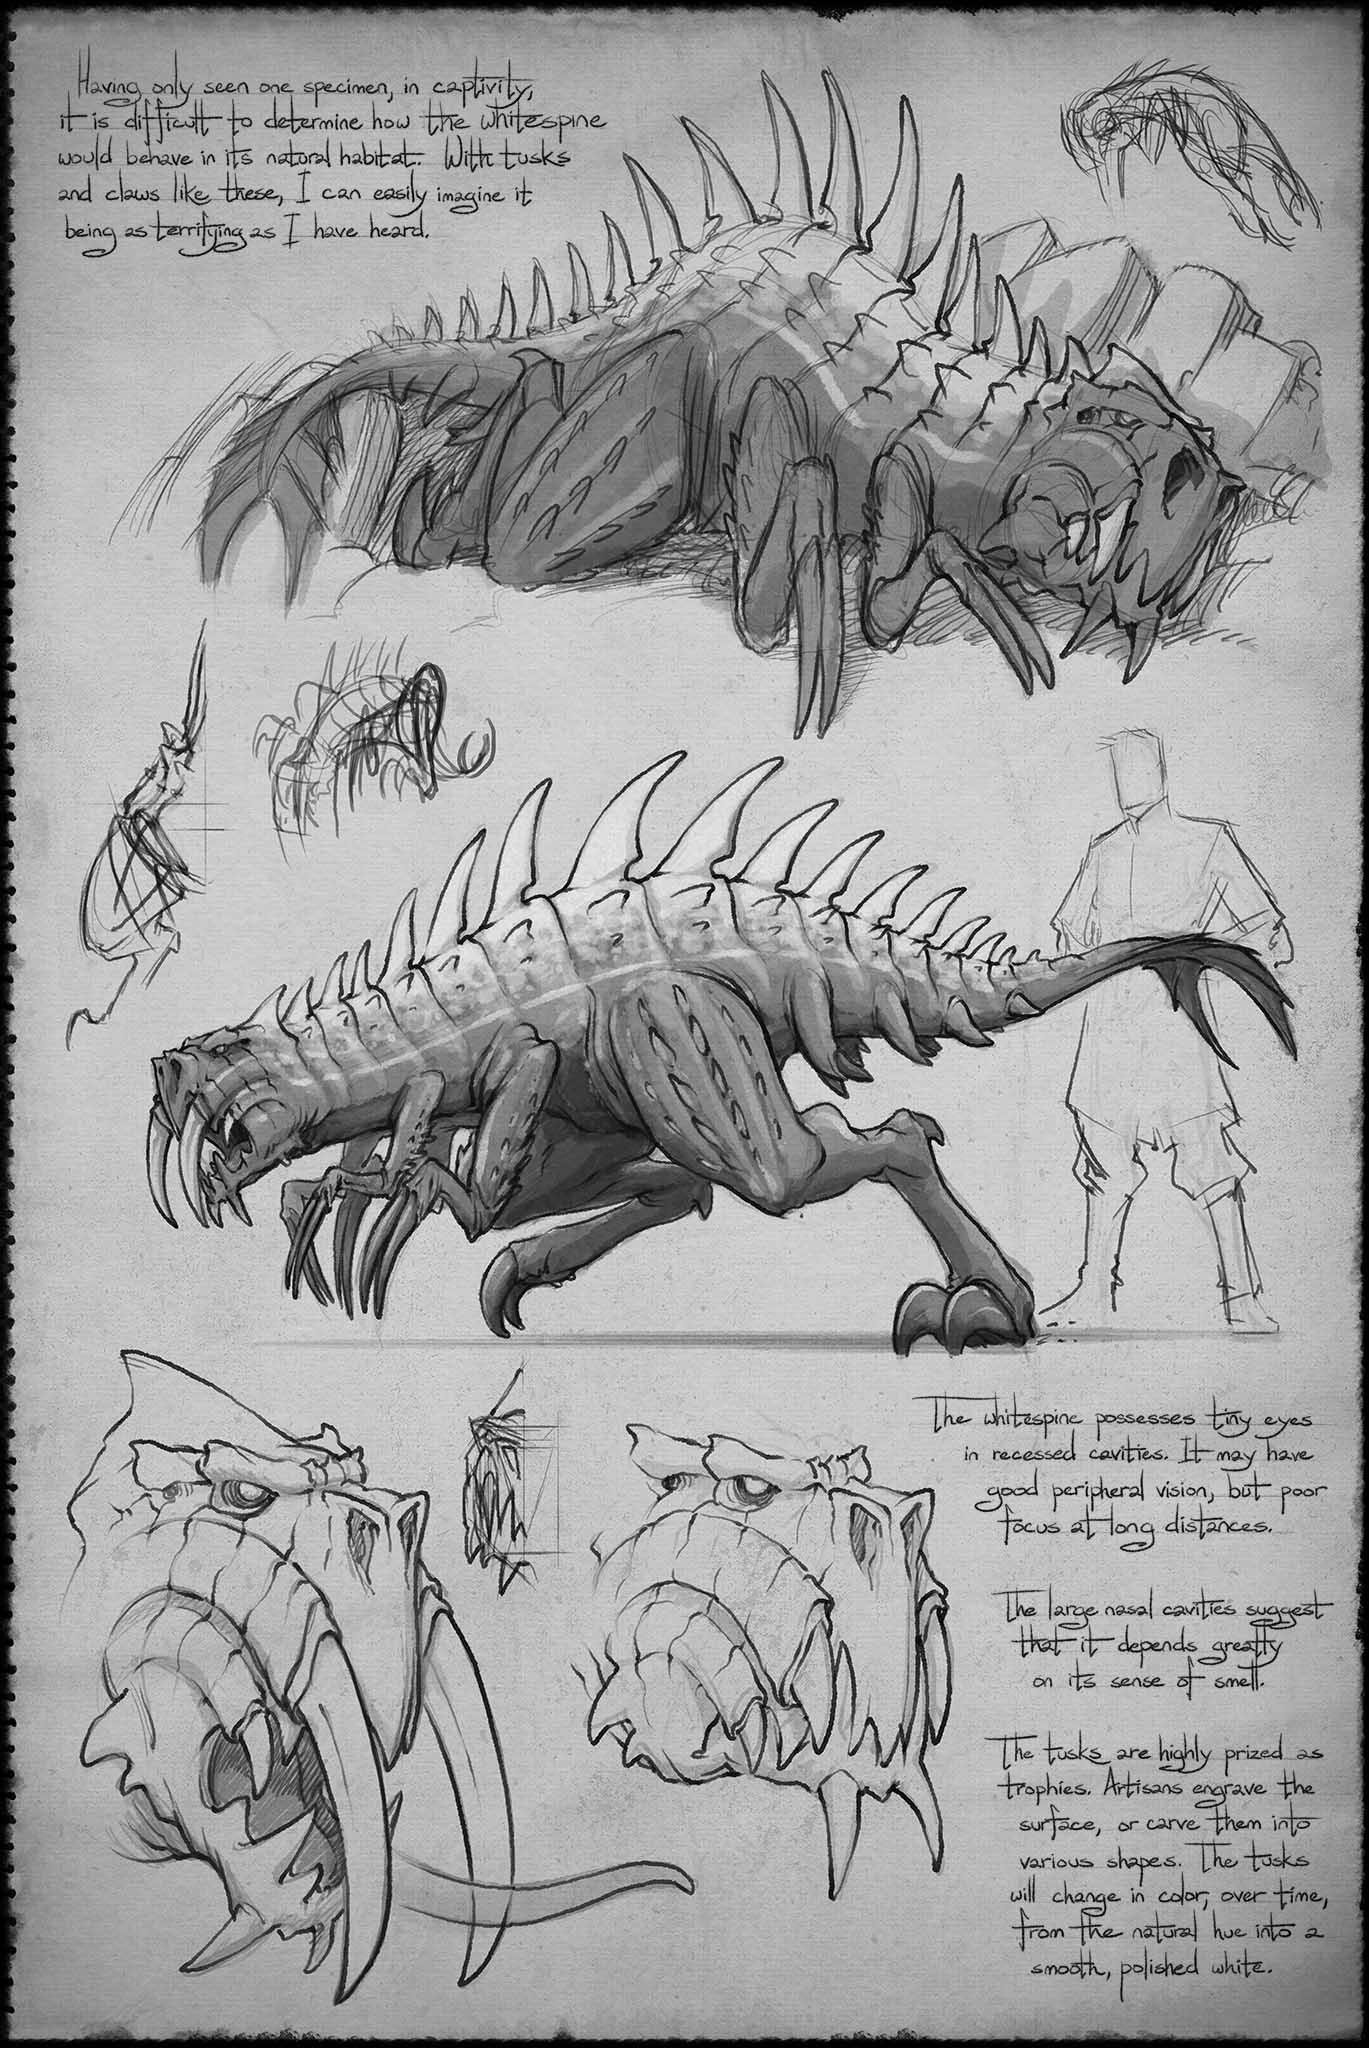 Having only seen one specimen, in captivity,
it is difficult to determine how the whitespine
would behave in its natural habitat. With tusks
and claws like these, I can easily imagine it
being as terrifying as I have heard.
The whitespine possesses tiny eyes
in recessed cavities. It may have
good peripheral vision, but poor
focus at long distances.
The large nasal cavities suggest
that it depends greatly
on its sense of smell.
The tusks are highly prized as
trophies. Artisans engrave the
surface, or carve them into
various shapes. The tusks
will change in color, over time,
from the natural hue into a
smooth, polished white.